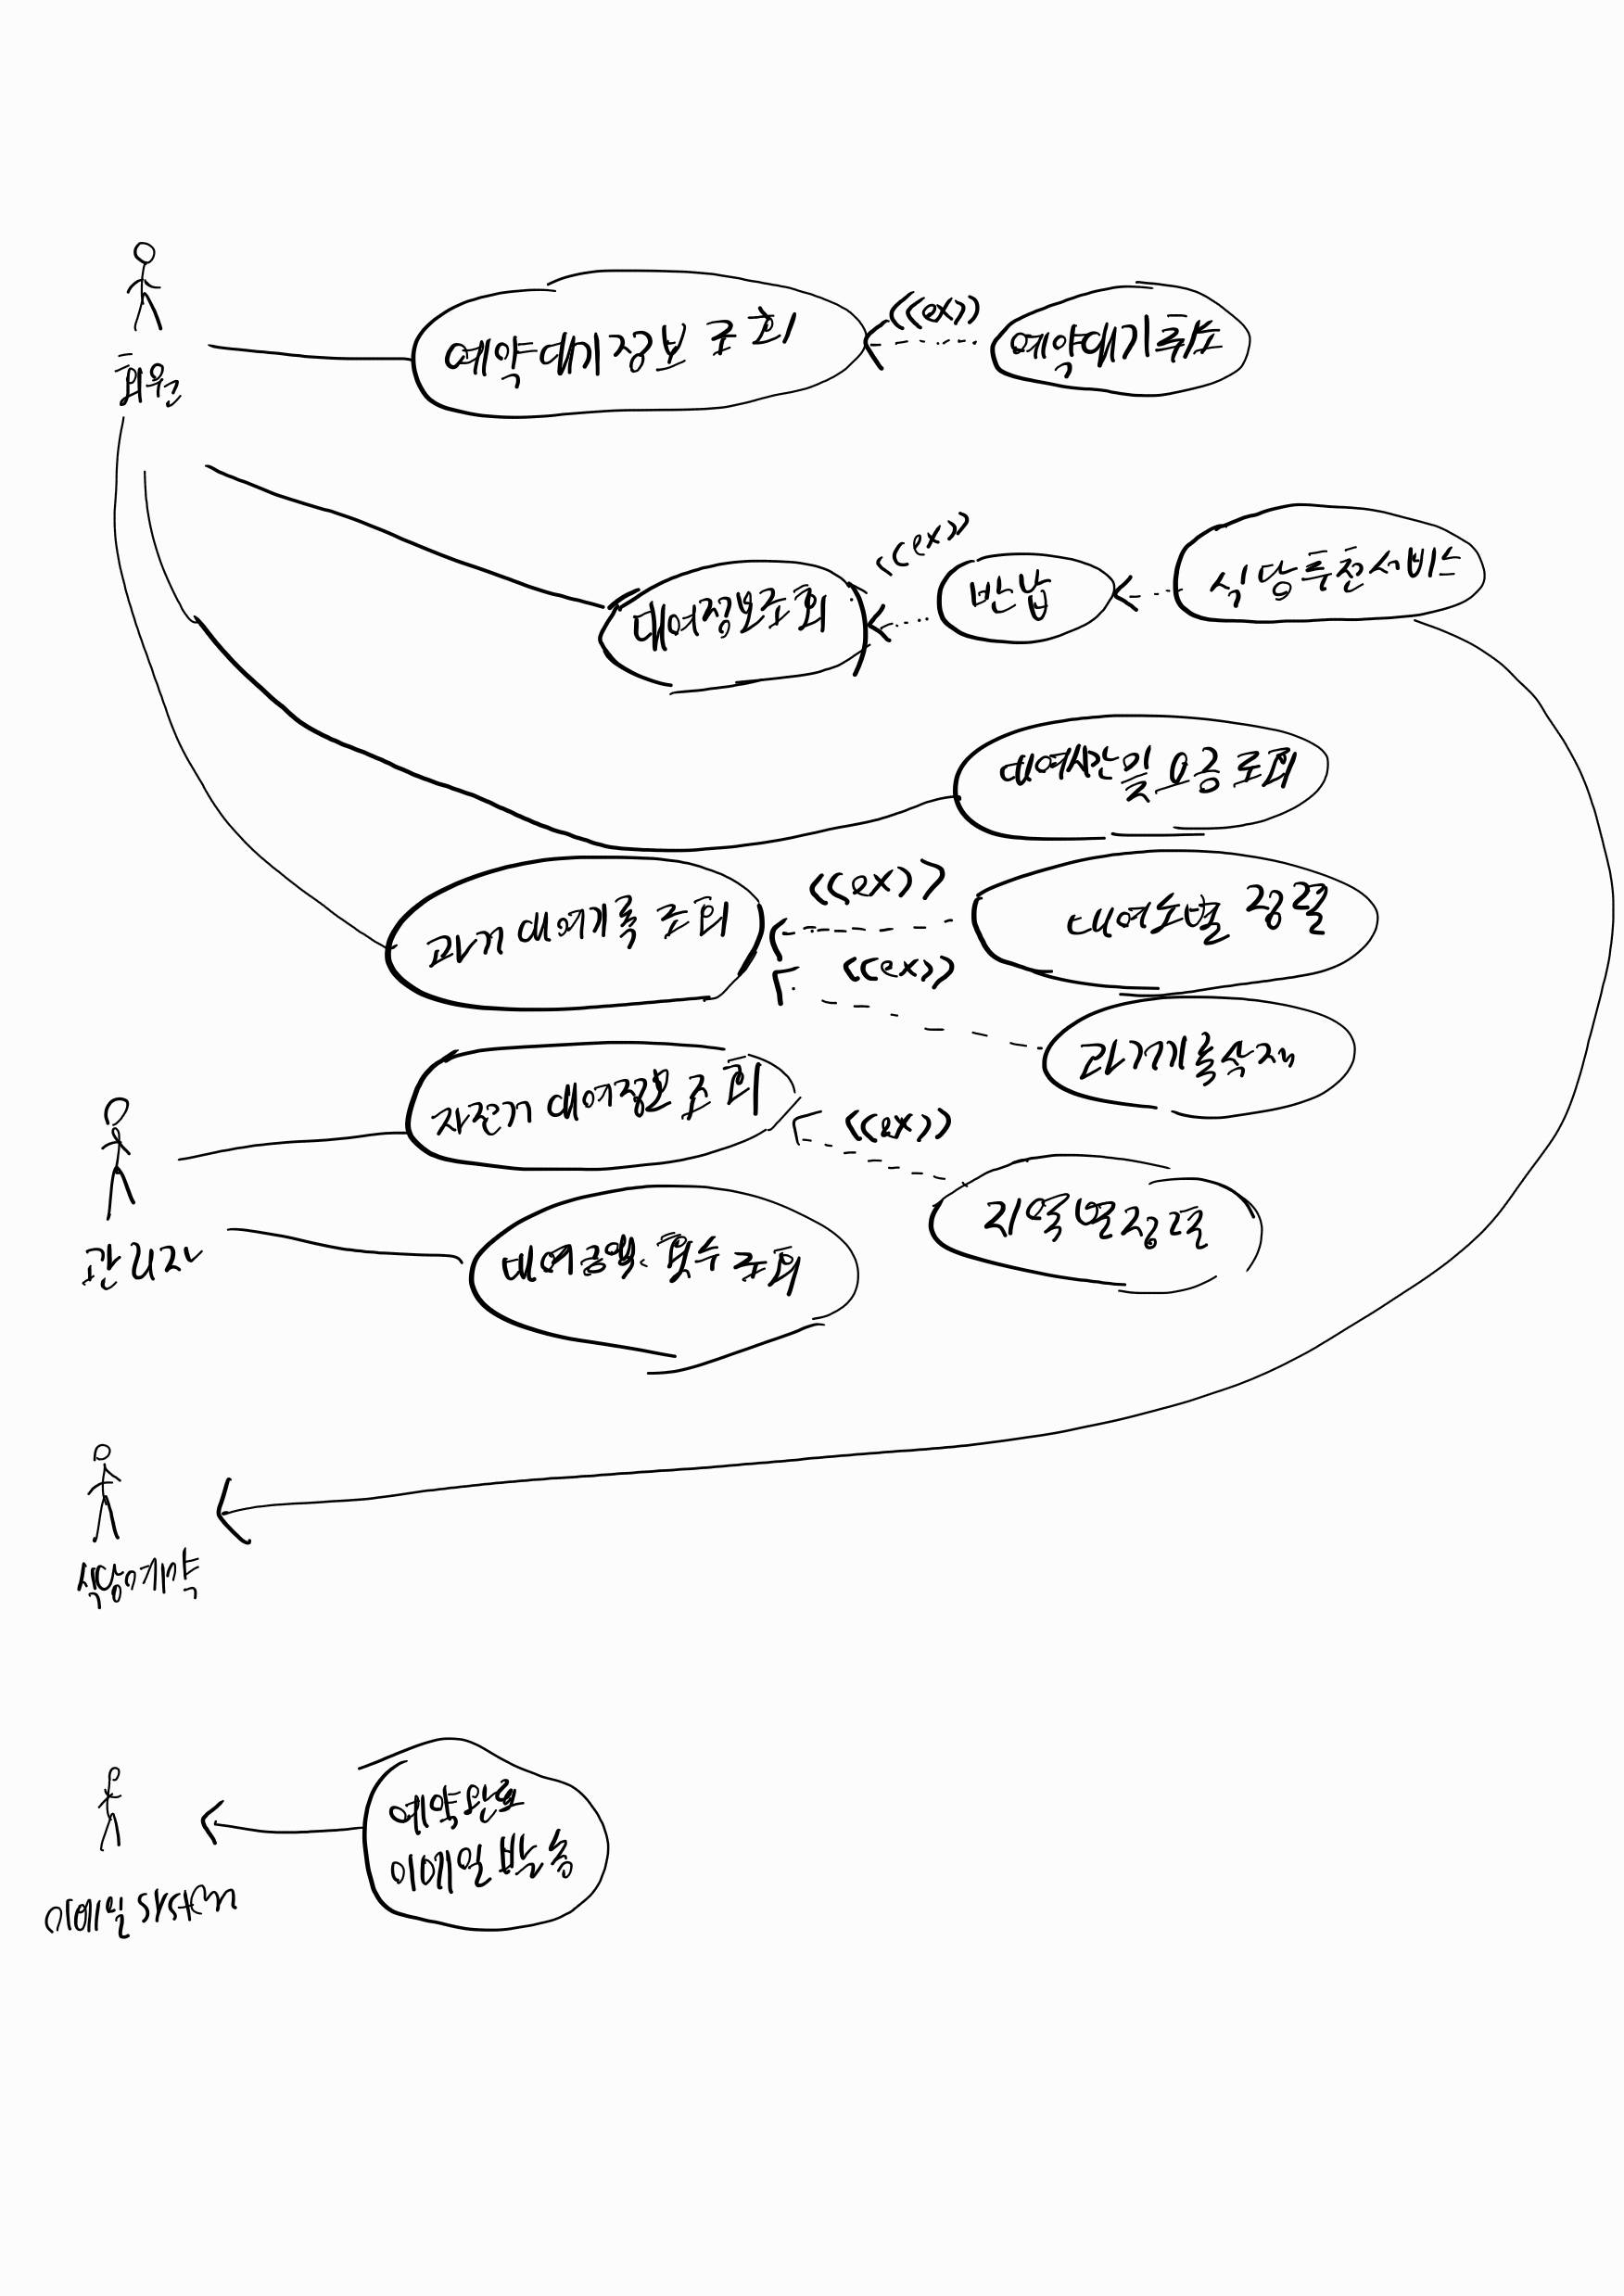 회원
예약대기정보 조회
<<ex>>
예약대기취소
대여정보조회
<<ex>>
반납
식당추천서비스
요금 조회
과거 대여기록 조회
<<ex>>
정렬
<<ex>>
과거기록삭제
관리자
자전거 대여정보 조회
<<ex>>
지역별정렬
조회
식당예약
이메일 system
예약완료
이메일 발송